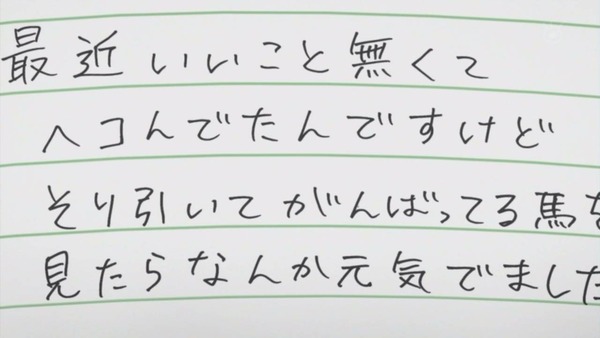 最近いいこと無くて
ヘコんでたんですけど
そり引いてがんばってる馬を
見たらなんか元気でました